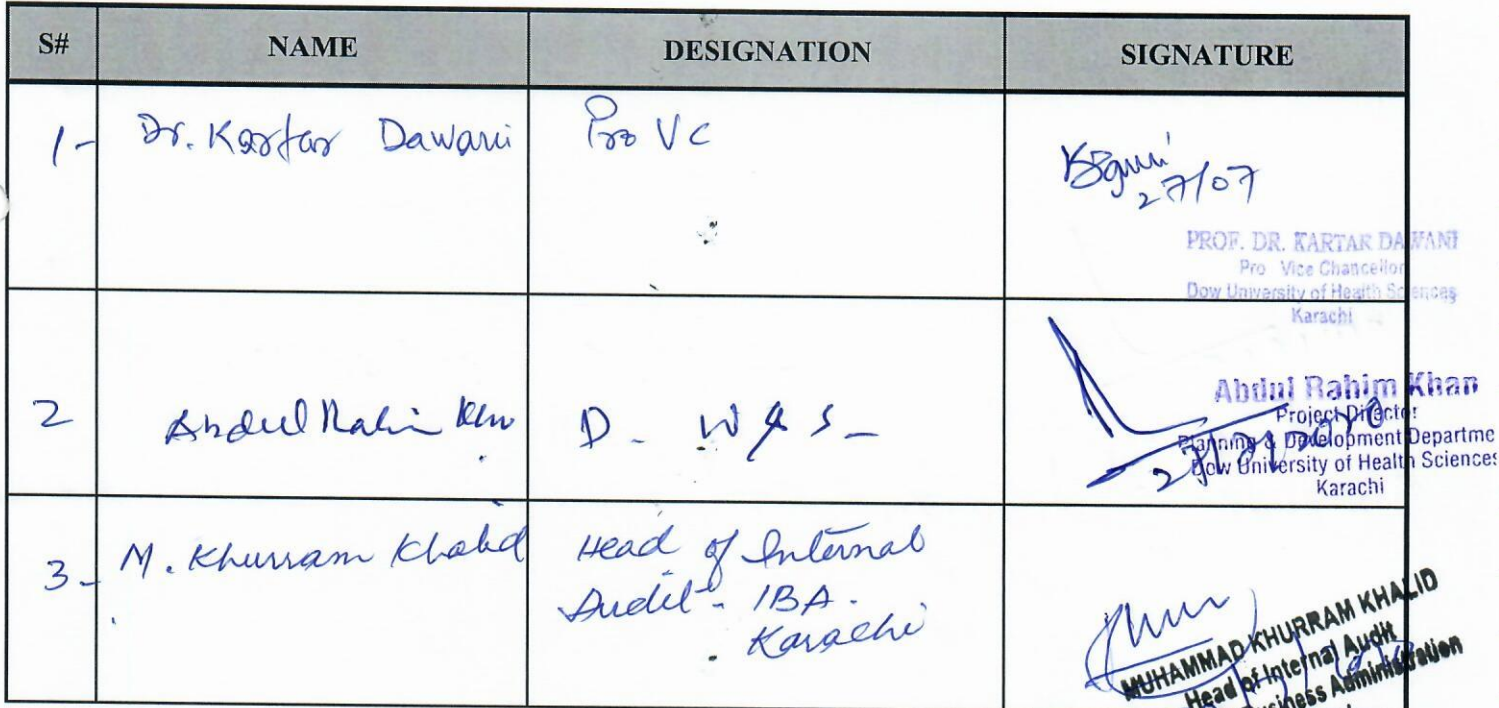 S# NAME DESIGNATION SIGNATURE
1- Dr. Kartar Dawani Pro VC
27/07
PROF. DR. KARTAR DAWANI
Pro Vice Chancellor
Dow University of Health Sciences
Karachi
2 Abdul Rahim Khan D- W & S-
Abdul Rahim Khan
Project Director
Planning & Development Departme
Dow University of Health Sciences
Karachi
3- M. Khurram Khalid Head of Internal
Audit - IBA.
Karachi
MUHAMMAD KHURRAM KHALID
Head of Internal Audit
Business Administration